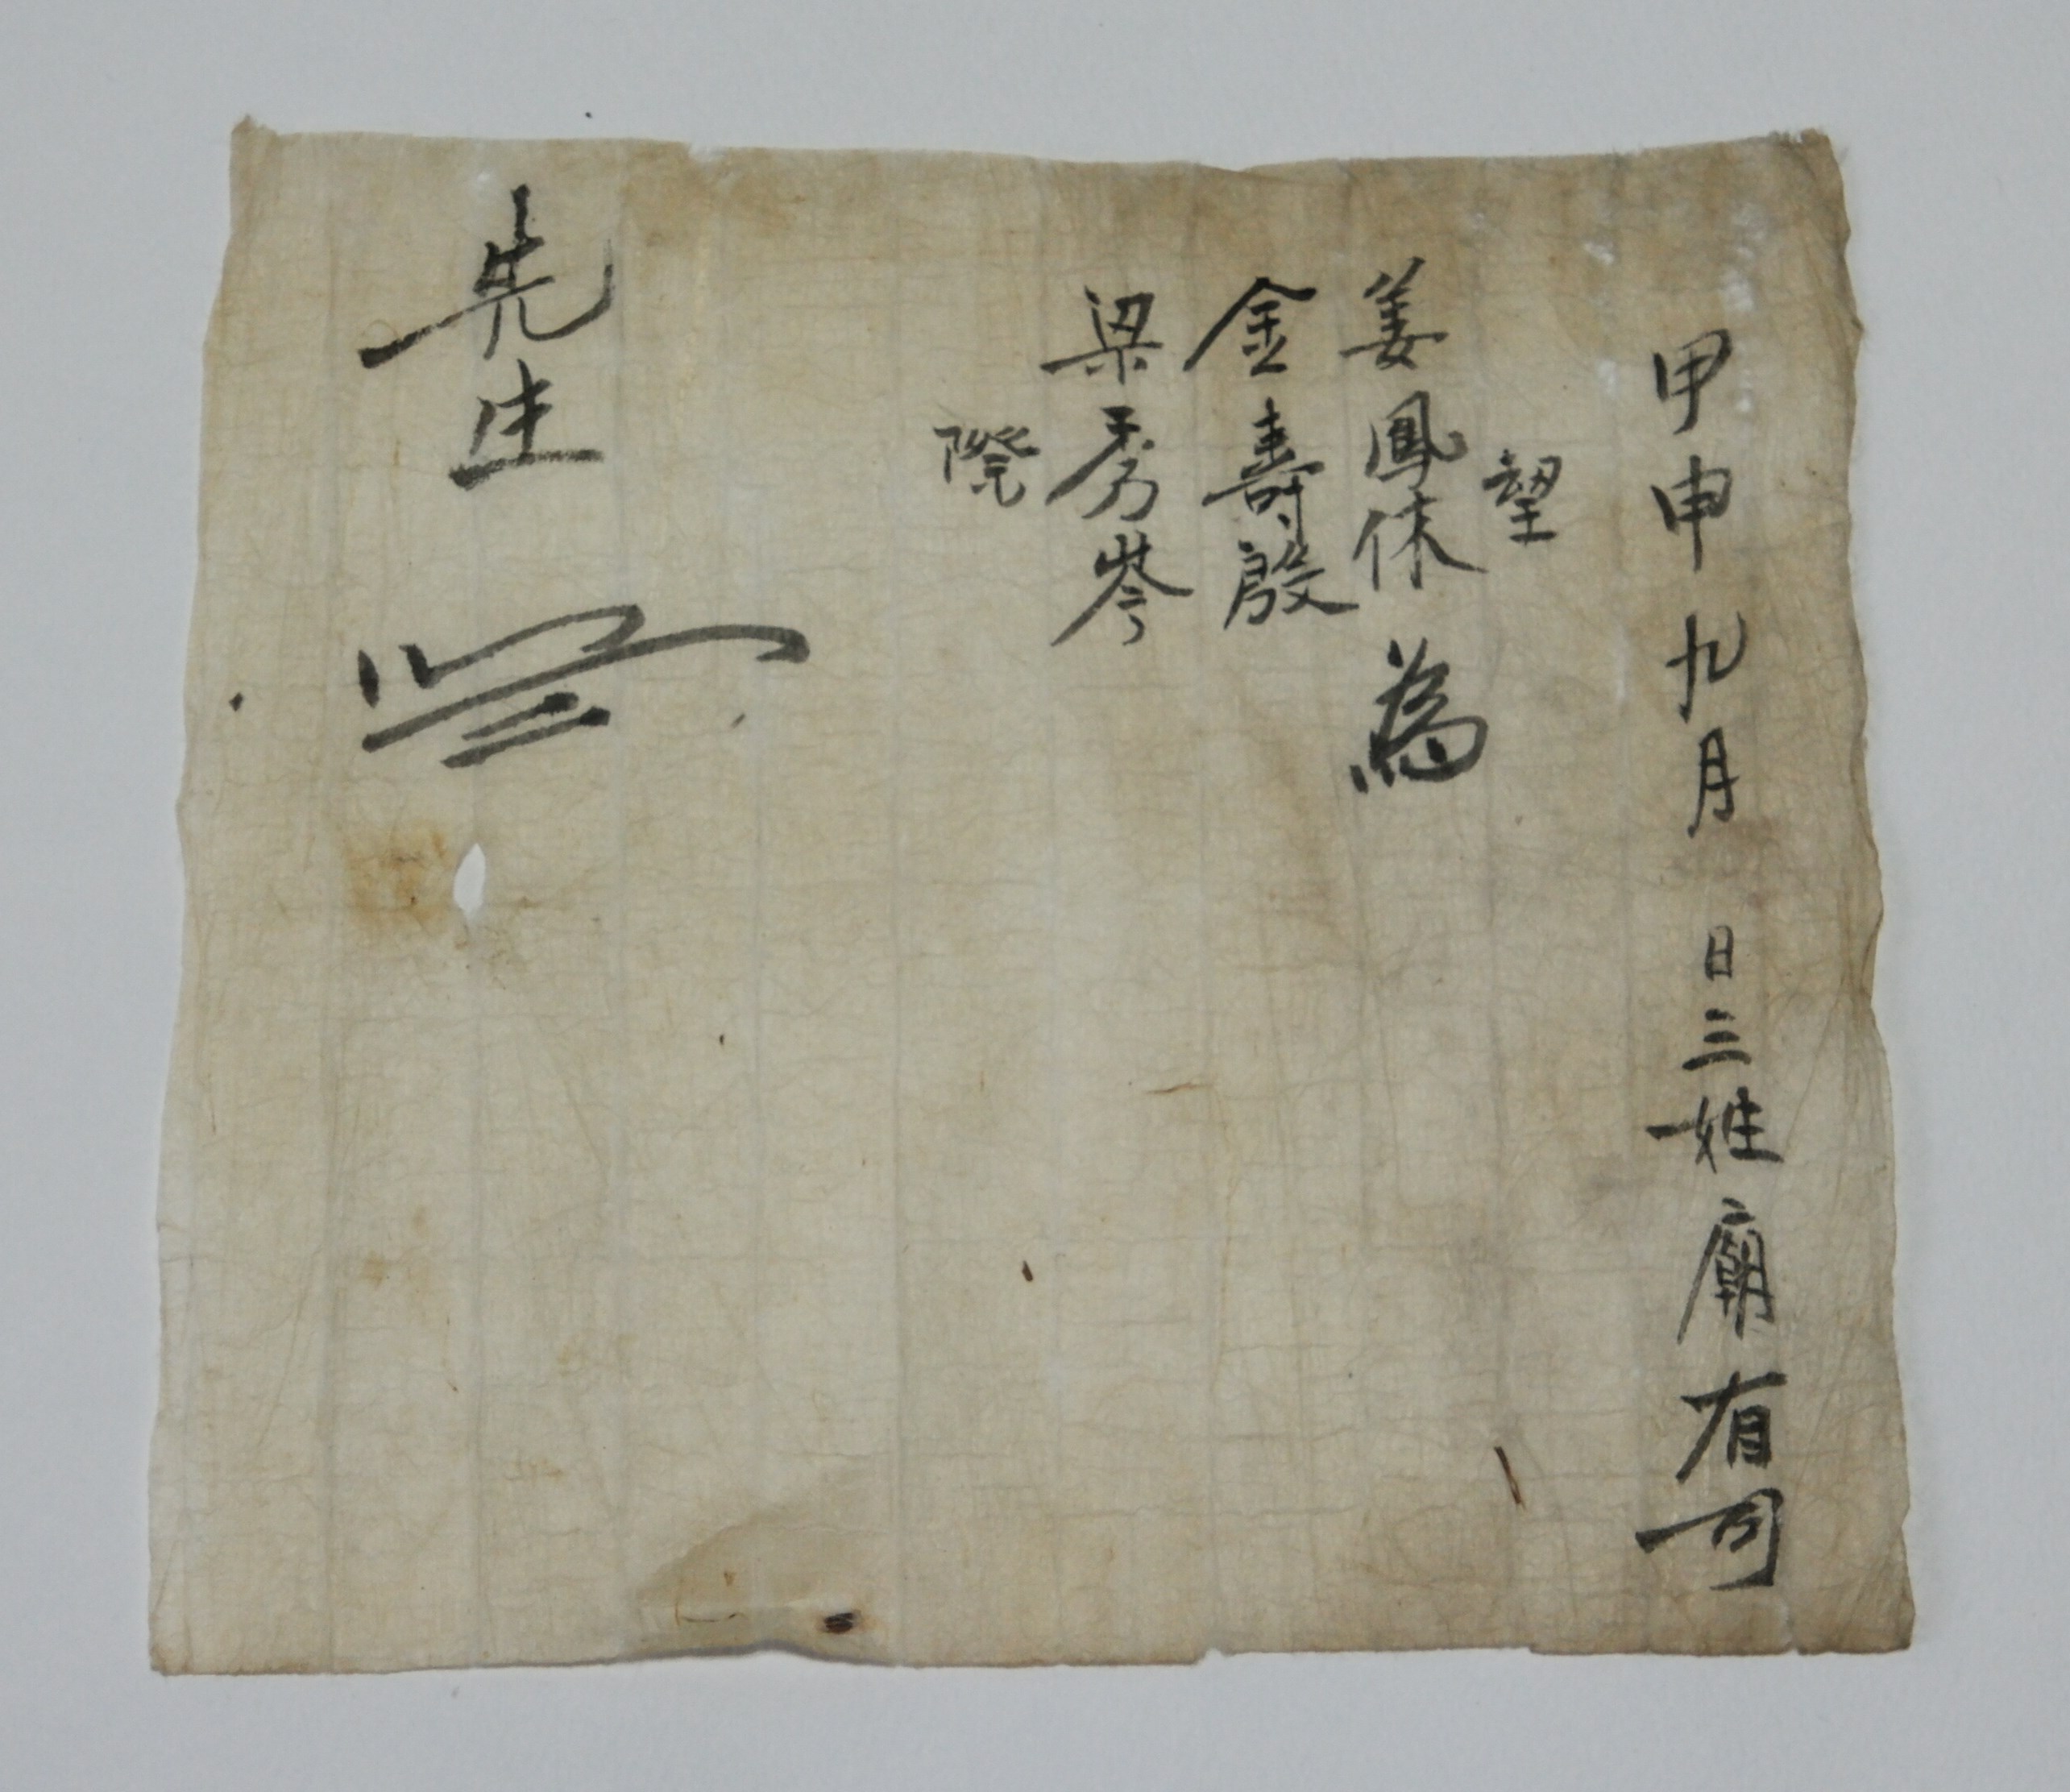 甲申九月 日三姓廟有司
望
姜鳳休 為
金壽殷
梁秀岑
際
先生